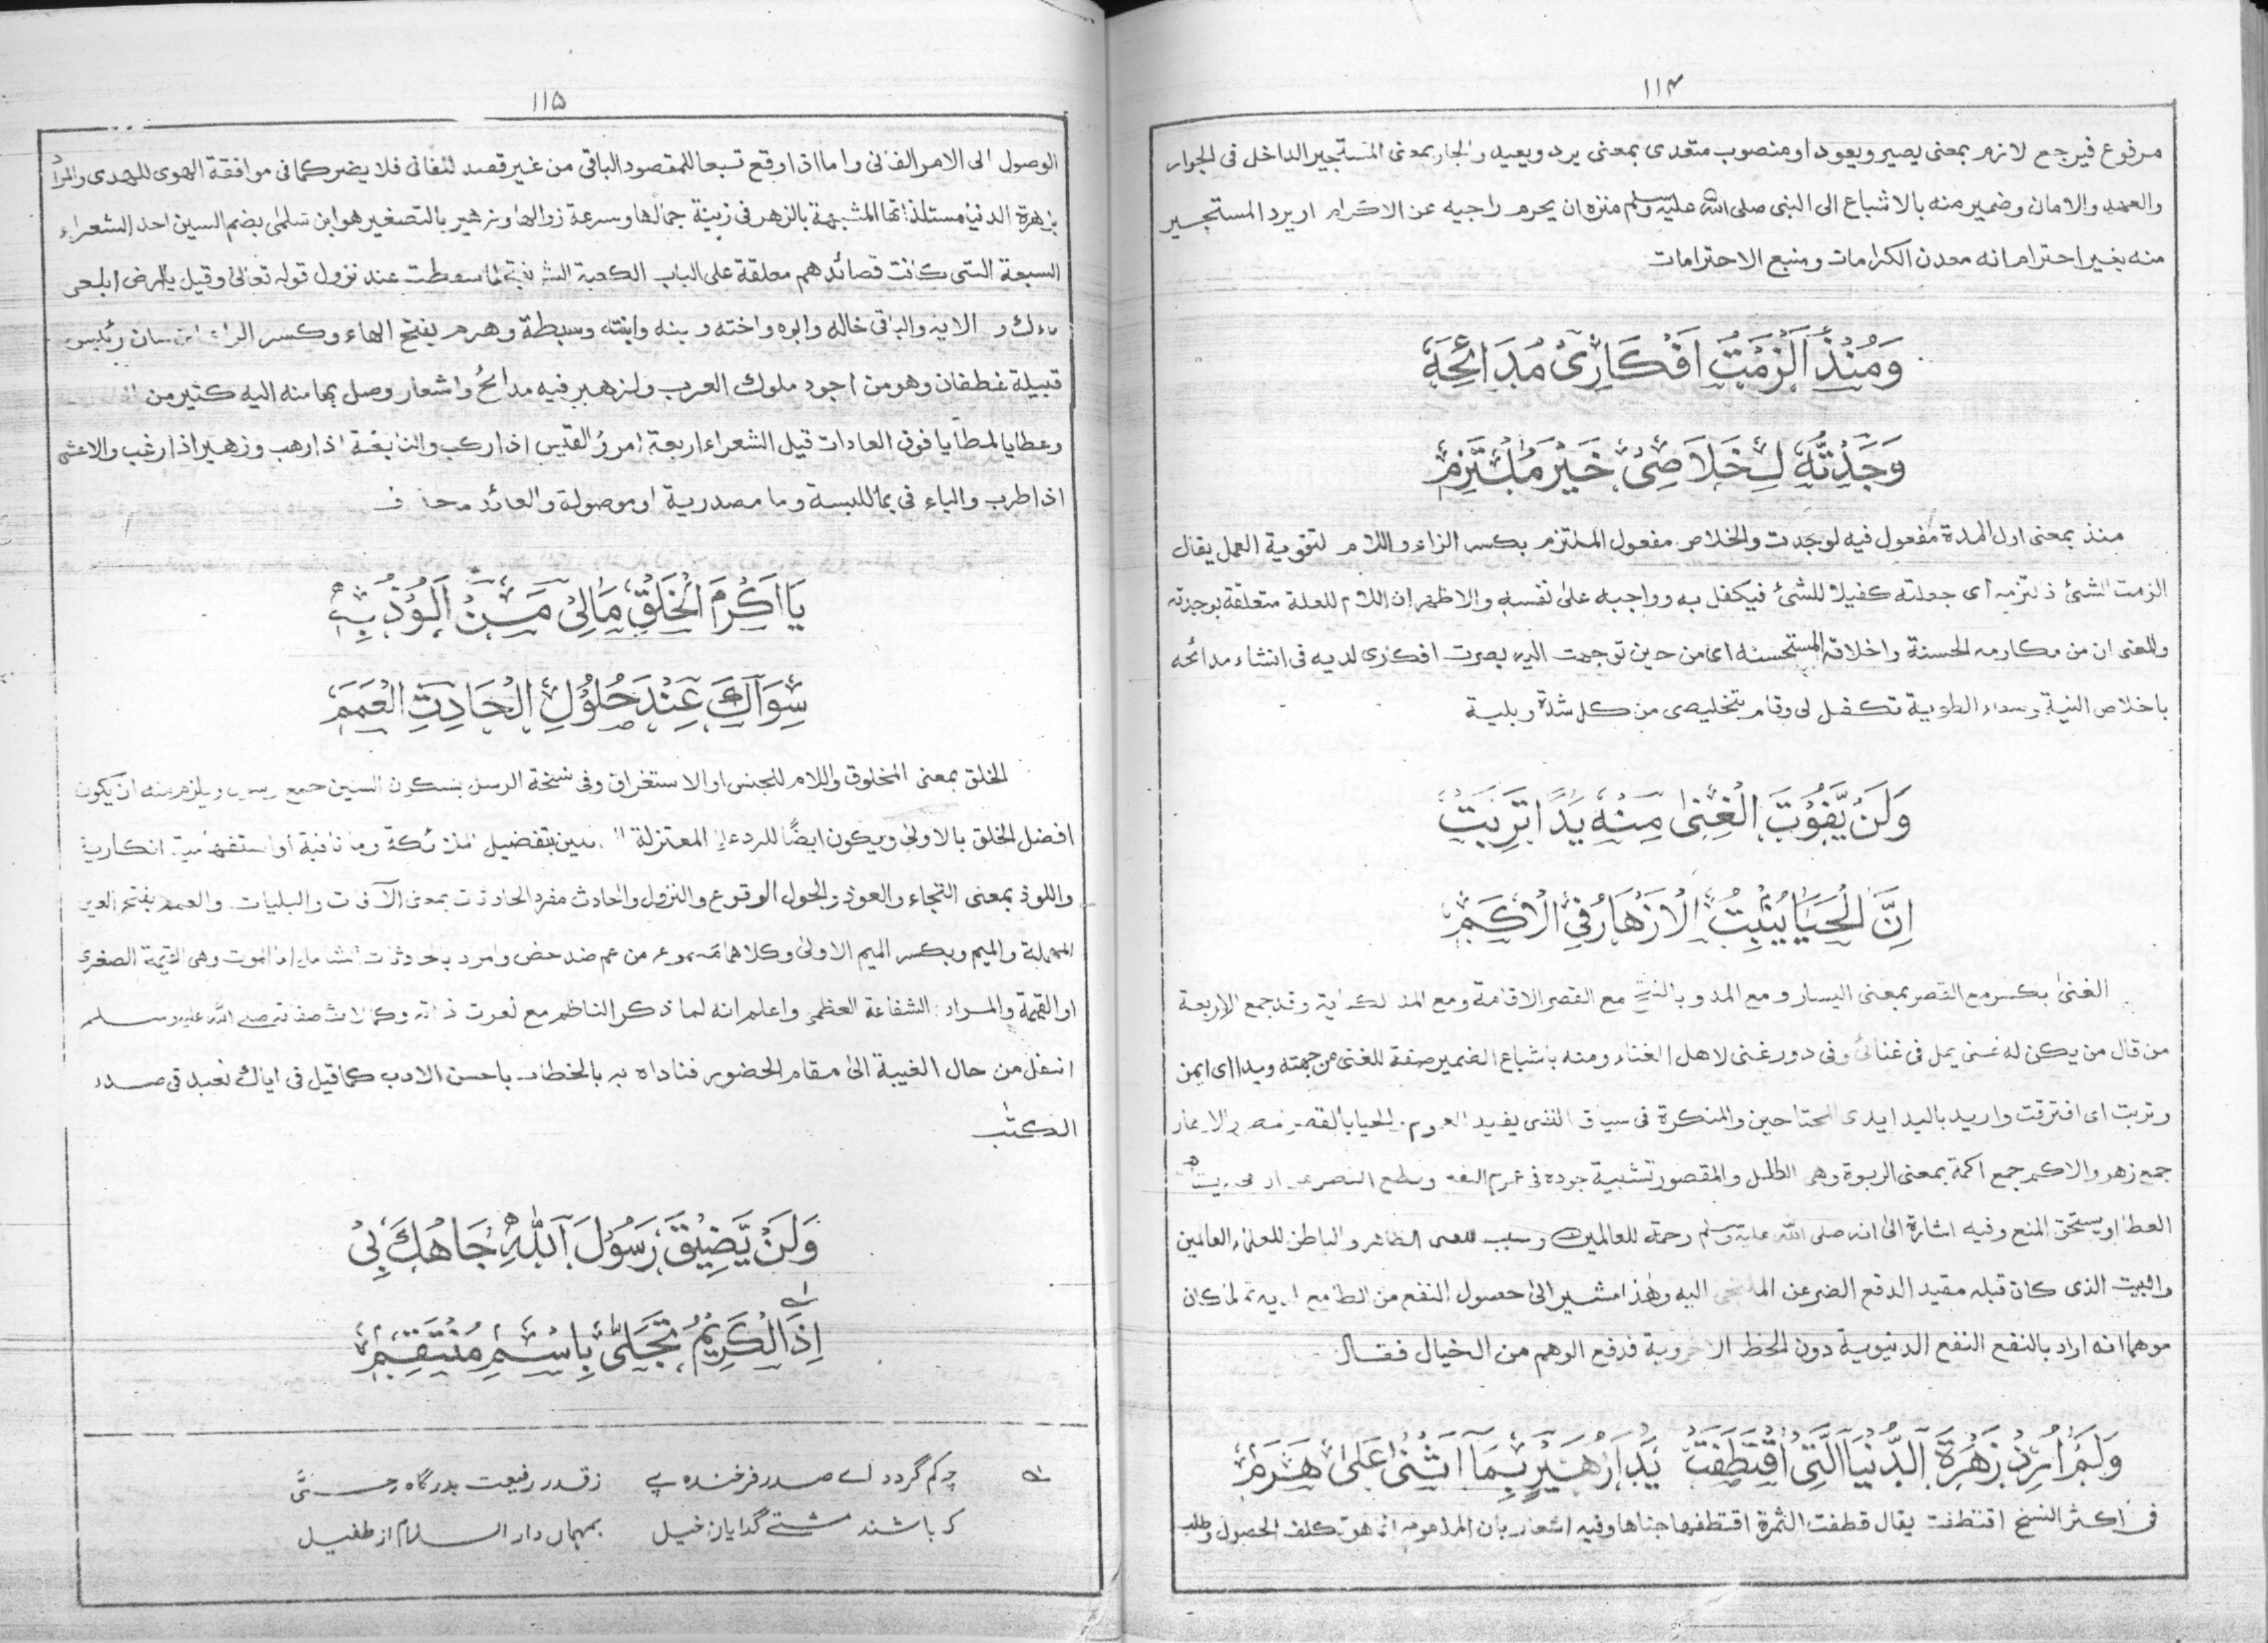 ١١٤
مرفوع فيرجع لازم بمعنى يصير ويعود او منصوب متعدى بمعنى يرد ويعيد والجار بمعنى المستجير الداخل فى الجوار
والعهد والامان وضمير منه بالاشباع الى النبى صلى الله عليه وسلم منزه ان يحرم راجيه عن الاكرام او يرد المستجير
منه بغير احترام انه معدن الكرامات ومنبع الاحترامات
وَمُنْذُ اَلْزَمْتُ اَفْكَارِىْ مَدَائِحَهٗ
وَجَدْتُّهٗ لِخَلَاصِىْ خَيْرَ مُلْتَزِمٖ
منذ بمعنى اول المدة مفعول فيه لوجدت والخلاص مفعول الملتزم بكسر الزاء واللام لتقوية العمل يقال
الزمت الشئ فالتزمه اى جعلته كفيلا للشئ فيكفل به وواجبه على نفسه والاظهر ان اللام للعلة متعلقة بوجدته
والمعنى ان من مكارمه الحسنة واخلاقه المستحسنه اى من حين توجهت اليه بصرت افكارى لديه فى انشاء مدائحه
باخلاص النية وصفاء الطوية تكفل لى وقام بتخليصى من كل شدة وبلية
وَلَنْ يَّفُوْتَ الْغِنٰى مِنْهُ يَدًا تَرِبَتْ
اِنَّ الْحَيَا يُنْبِتُ الْاَزْهَارَ فِى الْاَكَمٖ
الغنى بكسر مع القصر بمعنى اليسار ومع المد وبالفتح مع القصر الاقامة ومع المد الكفاية وقد جمع الاربعة
من قال من يكن له غنى يمل فى غنائى وفى دور غنى لاهل الغناء ومنه باشباع الضمير صفة للغنى من جهته ويدا اى ايمن
وتربت اى افترقت واريد باليد ايدى المحتاجين والمنكرة فى سياق النفى يفيد العموم والحيا بالقصر والازهار
جمع زهر والاكم جمع اكمة بمعنى الربوة وهى الطلل والمقصور تشبيه جوده فى عموم النفع
العطا او يستحق المنع وفيه اشارة الى انه صلى الله عليه وسلم رحمة للعالمين وسبب الظاهر والباطن للعلماء العالمين
والبيت الذى كان قبله مقيد الدفع الضر عن الملتجى اليه وهذا مشير الى حصول النفع من الطامع لديه ثم لما كان
موهما انه اراد بالنفع النفع الدنيوية دون الحظ الاخروية فدفع الوهم من الخيال فقال
وَلَمْ اُرِدْ زَهْرَةَ الدُّنْيَا الَّتِى اقْتَطَفَتْ يَدَا زُهَيْرٍ بِمَا اَثْنٰى عَلٰى هَرَمٖ
فى اكثر النسخ اقتطفت يقال قطفت الثمرة اقتطفها جناها وفيه اشعار بان المذموم انما هو تكلف الحصول وطلب
١١٥
الوصول الى الامر الفانى واما اذا وقع تبعا للمقصود الباقى من غير قصد للفانى فلا يضر كما فى موافقة الهوى للهدى والمراد
بزهرة الدنيا مستلذاتها المشبهة بالزهر فى زينة جمالها وسرعة زوالها وزهير بالتصغير هو ابن سلمى بضم السين احد الشعراء
السبعة التى كانت قصائدهم معلقة على الباب الكعبة الشريفة لما سقطت عند نزول قوله تعالى وقيل يا ارض ابلعى
ماءك الاية والباقى خاله وابوه واخته وبنه وابنته وسبطة وهرم بفتح الهاء وكسر الراء ابن سنان رئيس
قبيلة غطفان وهو من اجود ملوك العرب ولزهير فيه مدائح واشعار وصل بها منه اليه كثير من
وعطايا لمطايا فوق العادات قيل الشعراء اربعة امرؤ القيس اذا ركب والنابغة اذا رهب وزهير اذا رغب والاعشى
اذا طرب والباء فى بما للبسة وما مصدرية او موصولة والعائد محذوف
يَا اَكْرَمَ الْخَلْقِ مَالِىْ مَنْ اَلُوْذُ بِهٖ
سِوَاكَ عِنْدَ حُلُوْلِ الْحَادِثِ الْعَمَمٖ
الخلق بمعنى المخلوق واللام للجنس او الاستغراق وفى نسخة الرسل بسكون السين جمع رسول ويلزم منه ان يكون
افضل الخلق بالاولى ويكون ايضًا للرد على المعتزلة بتفضيل الملائكة وما نافية أو استفهامية انكارية
واللوذ بمعنى التجاء والعوذ والحول الوقوع والنزول والحادث مفرد الحادثات بمعنى الآفات والبليات والعمم بفتح العين
المهملة والميم وبكسر الميم الاولى وكلاهما مسموع من عم ضد خص والمراد بالحادثات الموت وهى القيمة الصغرى
او القيمة والمراد الشفاعة العظمى واعلم انه لما ذكر الناظم مع نعوت ذاته وكمالات صفاته صلى الله عليه وسلم
انتقل من حال الغيبة الى مقام الحضور فناداه به بالخطاب باحسن الادب كما قيل فى اياك نعبد فى صدر
الكتٰب
وَلَنْ يَّضِيْقَ رَسُوْلَ اللهِ جَاهُكَ بِىْ
اِذَا الْكَرِيْمُ تَجَلّٰى بِاسْمِ مُنْتَقِمٖ
چه كم گردد اے صدر فرخنده پے زقدر رفيعت بدرگاه حئ
كه باشند مشتے گدايان خيل بمهمان دار السلام از طفيل